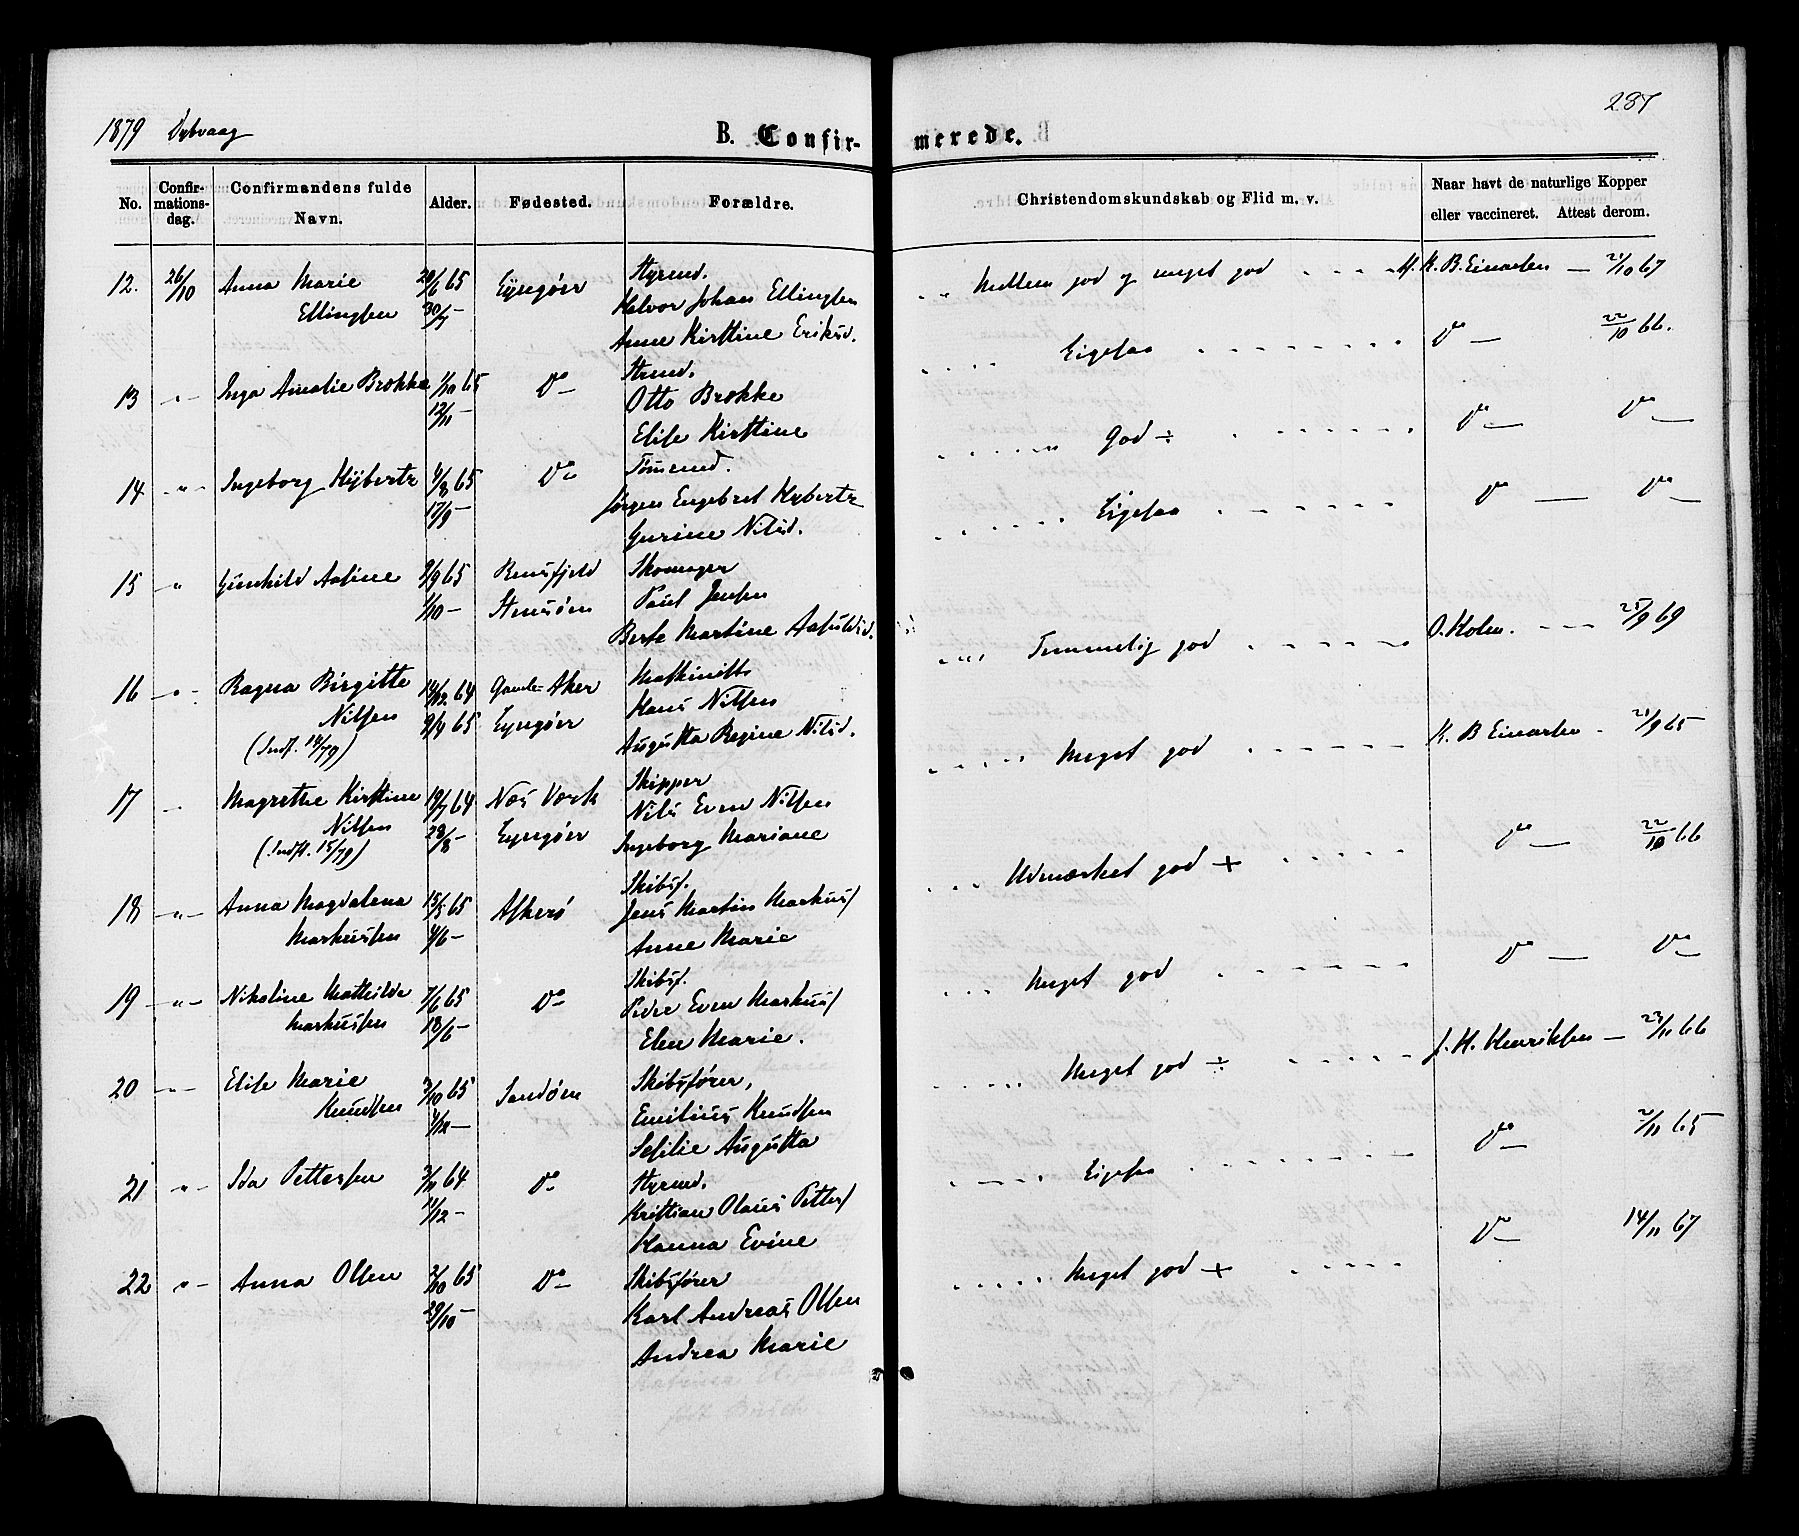 1879 Dybvaag
287
B. Confirmerede.
No.
Confirmationsdag.
Confirmandens fulde Navn.
Alder.
Fødested.
Forældre.
Christendomskundskab og Flid m. v.
Naar havt de naturlige Kopper eller vaccineret. Attest derom.
12. 26/10 Anna Marie Ellingsen 20/6 65 30/7 — Lyngøer Styrmd. Halvor Johan Ellingsen Anne Kirstine Eriksd. Mellem god og meget god K. B. Einarsen — 21/10 67
13 " Inga Amalie Brokke 1/10 65 12/11 — Do — Strmd. Otto Brokke Elise Kirstine Ligesaa Do — 22/10 66.
14 — " — Ingeborg Hybertz 4/8 65 17/9 — Do — Tømmd. Jørgen Engebret Hybertz Gurine Nilsd. God ÷ Do — Do —
15 " Gunhild Aasine 9/9 65 1/10 — Skomager Paul Jensen Berte Martine Aasulsd. Ligesaa Do — Do —
16 — " — Ragna Birgitte Nilsen (Indf. 14/79) 14/12 64 9/4 65 Gamle Aker Lyngøer Maskinist Hans Nilsen Augusta Regine Nilsd. Temmelig god O. Holm. — 25/9 69
17 " Magrethe Kirstine Nilsen (Indfl. 15/79) 19/7 64 28/8 — Næs Værk Lyngøer Skipper Nils Even Nilsen Ingeborg Mariane Meget god K. B Einarsen — 21/9 65
18 — " — Anna Magdalena Markussen 15/5 65 4/6 — Askerø Skibsf. Jens Martin Markus Anne Marie Udmærket god + Do — 22/10 66
19 — " — Nikoline Mathilde Markussen 7/6 65 18/6 — Do — Skibsf. Peder Even Markus Elen Marie. Meget god Do — Do —
20 — " — Elise Marie Knudsen 3/10 65 Sandøen Skibsfører, Emilius Knudsen Sesilie Augusta Meget god ÷ J. H. Henriksen — 23/11 66
21 " — Ida Pettersen 3/11 64 11/12 — Do — Styrmd. Kristian Olaus Petters Hanna Evine Ligesaa Do — 2/11 65
22 " — Anna Olsen 2/10 65 29/10 — Do — Skibsfører Karl Andreas Olsen Andrea Marie Meget god + Do — 14/11 67